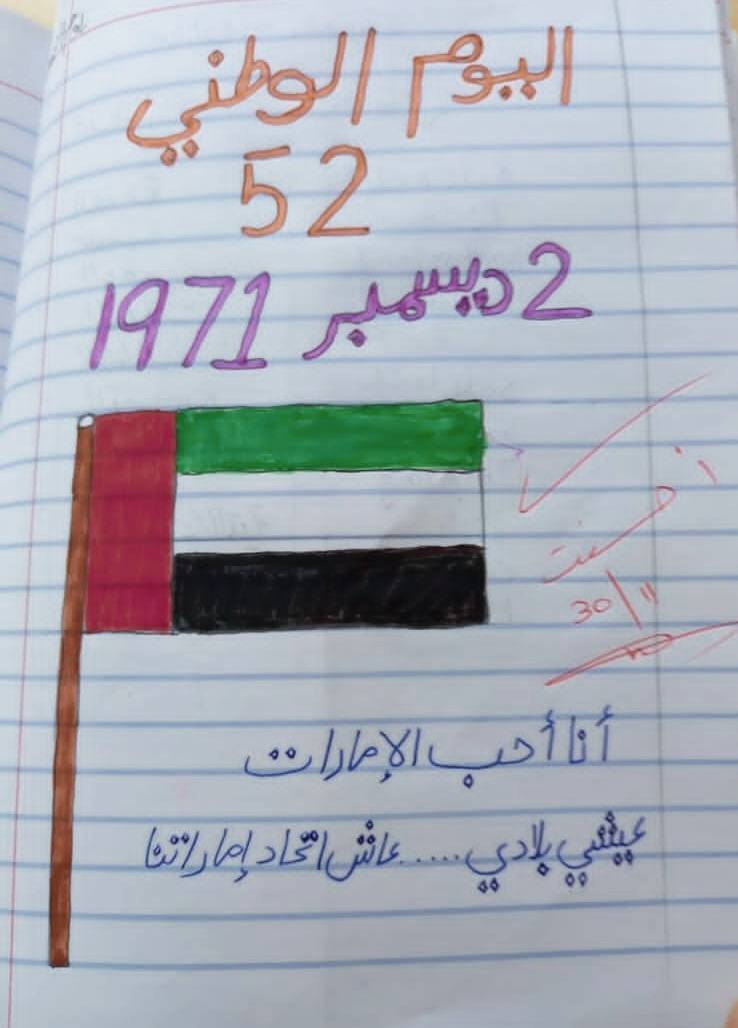 اليوم الوطني
52
2 ديسمبر 1971
أحسنت
30/11
أنا أحب الإمارات
عيشي بلادي .....عاش اتحاد إماراتنا